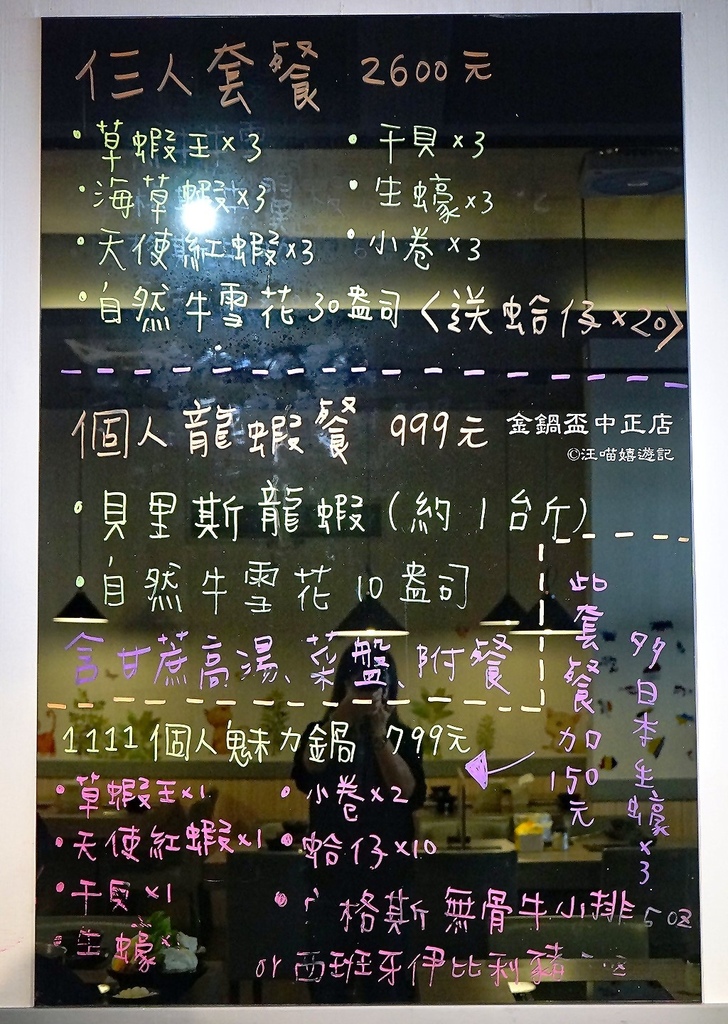 仨人套餐 2600元
•草蝦王×3 •干貝×3
•海草蝦×3 •生蠔×3
•天使紅蝦×3 •小卷×3
•自然牛雪花30盎司〈送蛤仔×20〉
個人龍蝦餐 999元
金鍋盃中正店
©汪喵嬉遊記
•貝里斯龍蝦(約1台斤)
•自然牛雪花10盎司
含甘蔗高湯、菜盤、附餐
1111個人魅力鍋 799元
•草蝦王×1 •小卷×2
•天使紅蝦×1 •蛤仔×10
•干貝×1
格斯無骨牛小排5oz
•生蠔×
or西班牙伊比利豬
此套餐加150元
多日本生蠔×3